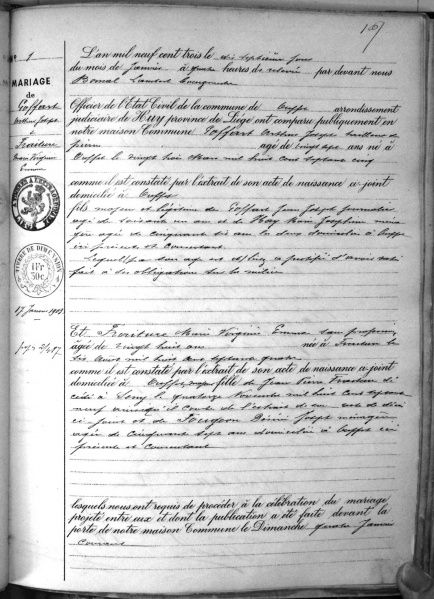 157
N° 1
MARIAGE
de
Goffart
Arthur Joseph
&
Fraiture
Marie Virginie
Emma
17 Janvier 1903
L'an mil neuf cent trois le dix septième jour
du mois de Janvier à quatre heures de relevée par devant nous
Bomal Lambert
Officier de l'Etat Civil de la commune de Ouffet arrondissement
judiciaire de Huy province de Liège ont comparu publiquement en
notre maison Commune Goffart Arthur Joseph tailleur de
pierre âgé de vingt sept ans né à
Ouffet le vingt trois Mars mil huit cent septante cinq
comme il est constaté par l'extrait de son acte de naissance ci-joint
domicilié à Ouffet
fils majeur légitime de Goffart Jean Joseph journalier
âgé de soixante ans et de Marie Joséphine ména
gère âgée de cinquante six ans la deux domiciliés à Ouffet
ici présents et consentant
Lequel par son a justifié d'avoir satis
fait à ses obligations sur la milice
Et Fraiture Marie Virginie Emma sans profession
âgée de vingt huit ans née à Fraiture le
six Août mil huit cent septante quatre
comme est constaté par l'extrait de son acte de naissance ci-joint
domiciliée à Ouffet fille de Jean Pierre Fraiture dé
cédé à le quatorze Novembre mil huit cent septante
neuf ainsi qu'il conste de l'extrait de son acte de décès
ci joint et de ménagère
âgée de cinquante sept ans domiciliée à Ouffet ici
présente et consentant
lesquels nous ont requis de procéder à la célébration du mariage
projeté entre eux et dont la publication a été faite devant la
porte de notre maison Commune le Dimanche quatre Janvier
Courant